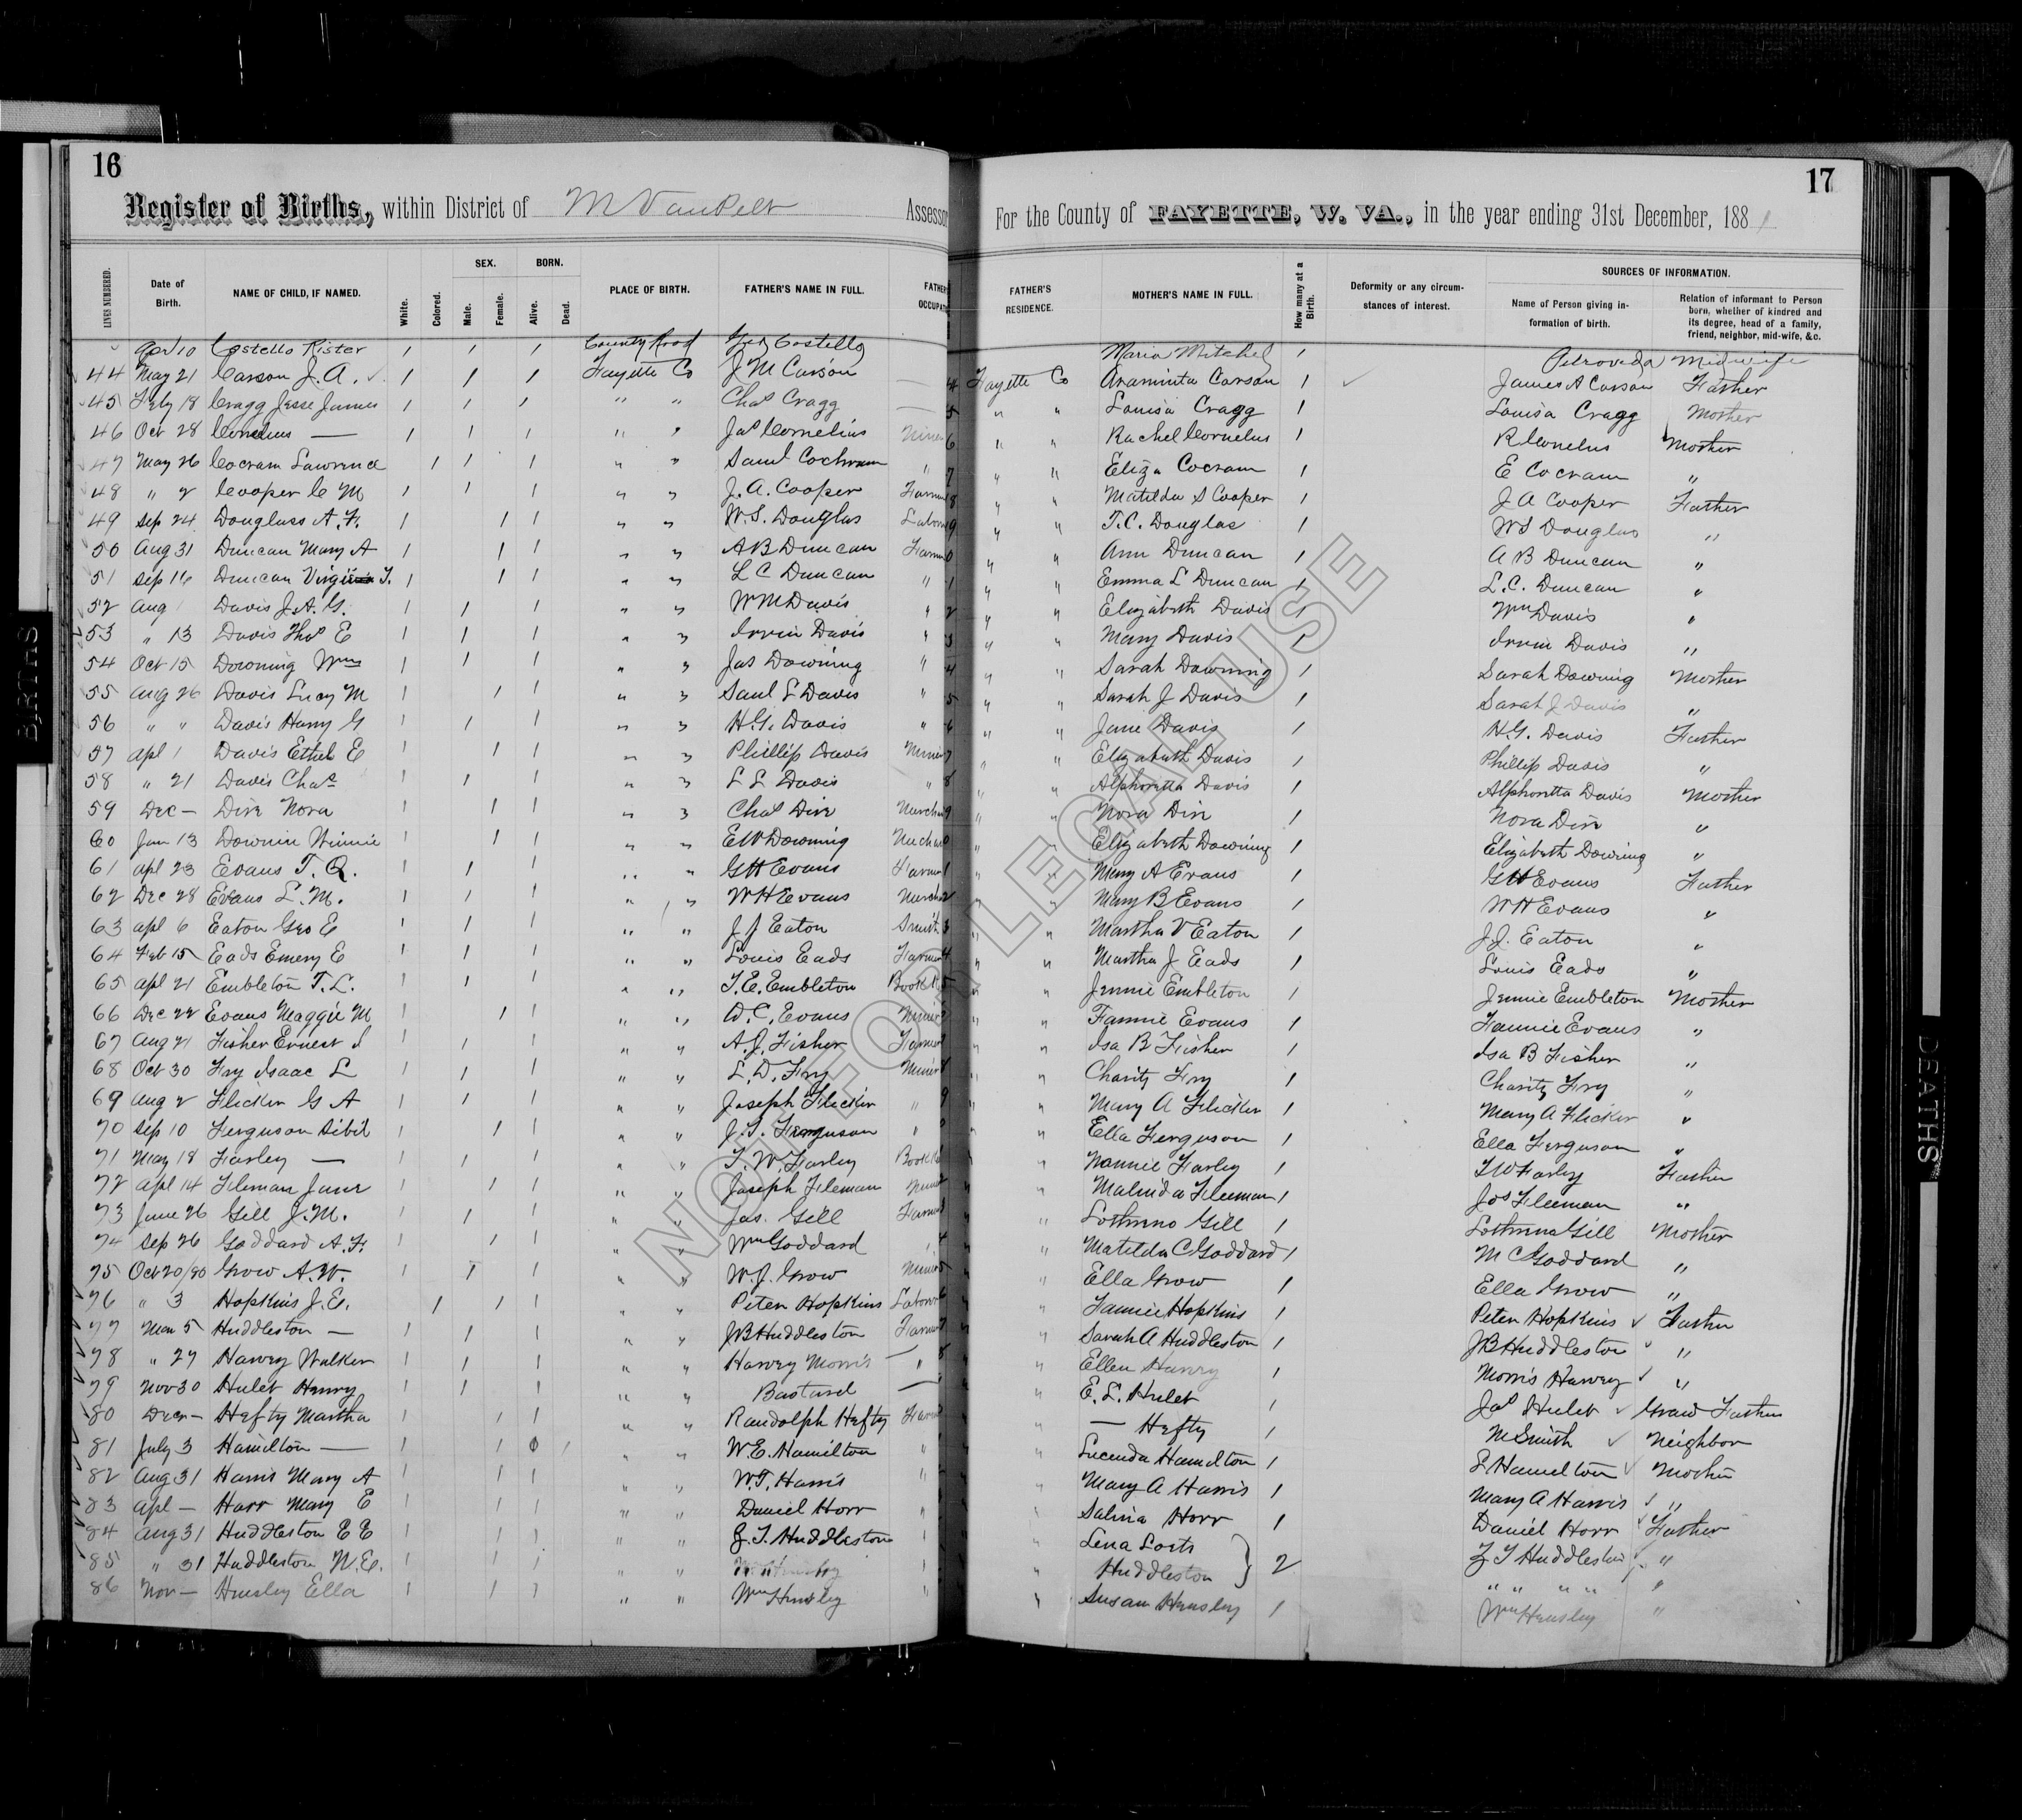 16
Register of Births, within District of M VanPelt Assessor
LINES NUMBERED. Date of Birth. NAME OF CHILD, IF NAMED. White. Colored. SEX. Male. Female. BORN. Alive. Dead. PLACE OF BIRTH. FATHER'S NAME IN FULL. FATHER OCCUPATI
Apr 10 Costello Rister 1 1 1 County Road Geo Costello
44 May 21 Carson J. A. 1 1 1 Fayette Co J M Carson
45 July 18 Cragg Jesse James 1 1 1 " " Chas Cragg
46 Oct 28 Cornelius — 1 1 1 " " Jas Cornelius Miner
47 May 26 Cocram Lawrence 1 1 1 " " Saml Cochram "
48 " 2 Cooper C M 1 1 1 " " J. A. Cooper Farm
49 Sep 24 Douglass A. F. 1 1 1 " " W. S. Douglas Labor
50 Aug 31 Duncan Mary A 1 1 1 " " A B Duncan Farm
51 Sep 16 Duncan Virginia T. 1 1 1 " " L C Duncan "
52 Aug 1 Davis J. A. G. 1 1 1 " " W M Davis "
53 " 13 Davis Thos E 1 1 1 " " Irvin Davis "
54 Oct 15 Downing Wm 1 1 1 " " Jas Downing "
55 Aug 26 Davis Lucy M 1 1 1 " " Saml L Davis "
56 " " Davis Harry G 1 1 1 " " H. G. Davis "
57 Apl 1 Davis Ethel E 1 1 1 " " Phillip Davis Miner
58 " 21 Davis Chas 1 1 1 " " L L Davis "
59 Dec — Dix Nora 1 1 1 " " Chas Dix Merchan
60 Jan 13 Downin Winnie 1 1 1 " " E W Downing Mechan
61 Apl 23 Evans T. Q. 1 1 1 " " G H Evans Farm
62 Dec 28 Evans L. M. 1 1 1 " " W H Evans Mercha
63 Apl 6 Eaton Geo E 1 1 1 " " J J Eaton Smith
64 Feb 15 Eads Emery E 1 1 1 " " Louis Eads Farmer
65 Apl 21 Embleton T. L. 1 1 1 " " T. E. Embleton Book K
66 Dec 22 Evans Maggie M 1 1 1 " " D. C. Evans Miner
67 Aug 21 Fisher Ernest J 1 1 1 " " A. J. Fisher Farmer
68 Oct 30 Fry Isaac L 1 1 1 " " L. D. Fry Miner
69 Aug 2 Flicker G A 1 1 1 " " Joseph Flicker "
70 Sep 10 Ferguson Sibil 1 1 1 " " J. T. Ferguson "
71 May 18 Farley — 1 1 1 " " T. W. Farley Book K
72 Apl 14 Fleman Jane 1 1 1 " " Joseph Fleman Miner
73 June 26 Gill J. M. 1 1 1 " " Jas. Gill Farm
74 Sep 26 Goddard A. F. 1 1 1 " " Wm Goddard "
75 Oct 20/80 Grow A. W. 1 1 1 " " W. J. Grow Miner
76 " 3 Hopkins J. E. 1 1 1 " " Peter Hopkins Labor
77 Mar 5 Huddleston — 1 1 1 " " J B Huddleston Farm
78 " 27 Harvey Walker 1 1 1 " " Harvey Morris — "
79 Nov 30 Hulet Henry 1 1 1 " " Bastard —
80 Decr — Hefty Martha 1 1 1 " " Randolph Hefty Farm
81 July 3 Hamilton — 1 1 1 " " W. E. Hamilton "
82 Aug 31 Harris Mary A 1 1 1 " " W. T. Harris "
83 Apl — Harr Mary E 1 1 1 " " Daniel Horr "
84 Aug 31 Huddleston E E 1 1 1 " " Z. T. Huddleston
85 " 31 Huddleston N. E. 1 1 1 " "
86 Nov — Hensley Ella 1 1 1 " " Wm Hensley "
17
For the County of FAYETTE, W. VA., in the year ending 31st December, 1881
FATHER'S RESIDENCE. MOTHER'S NAME IN FULL. How many at a Birth. Deformity or any circumstances of interest. SOURCES OF INFORMATION. Name of Person giving information of birth. Relation of informant to Person born, whether of kindred and its degree, head of a family, friend, neighbor, mid-wife, &c.
Maria Mitchel 1 Midwife
4 Fayette Co Araminta Carson 1 James A Carson Father
5 " " Louisa Cragg 1 Louisa Cragg Mother
6 " " Rachel Cornelus 1 R Cornelus Mother
7 " " Eliza Cocram 1 E Cocram "
8 " " Matilda S Cooper 1 J A Cooper Father
9 " " T. C. Douglas 1 W S Douglas "
0 " " Ann Duncan 1 A B Duncan "
1 " " Emma L Duncan 1 L. C. Duncan "
2 " " Elizabeth Davis 1 Wm Davis "
3 " " Mary Davis 1 Irvin Davis "
4 " " Sarah Downing 1 Sarah Downing Mother
5 " " Sarah J Davis 1 Sarah J Davis "
6 " " Jane Davis 1 H. G. Davis Father
7 " " Elizabeth Davis 1 Phillip Davis "
8 " " Alphoretta Davis 1 Alphoretta Davis Mother
9 " " Nora Dix 1 Nora Dix "
0 " " Elizabeth Downing 1 Elizabeth Downing "
1 " " Mary A Evans 1 G H Evans Father
2 " " Mary B Evans 1 W H Evans "
3 " " Martha V Eaton 1 J. J. Eaton "
4 " " Martha J Eads 1 Louis Eads "
5 " " Jennie Embleton 1 Jennie Embleton Mother
" " Fannie Evans 1 Fannie Evans "
" " Isa B Fisher 1 Isa B Fisher "
8 " " Charity Fry 1 Charity Fry "
9 " " Mary A Flicker 1 Mary A Flicker "
" " Ella Ferguson 1 Ella Ferguson "
" " Nannie Farley 1 T W Farley Father
" " Malinda Fleeman 1 Jos Fleeman "
" " Gill 1 Gill Mother
4 " " Matilda C Goddard 1 M C Goddard "
5 " " Ella Grow 1 Ella Grow "
" " Fannie Hopkins 1 Peter Hopkins Father
" " Sarah A Huddleston 1 J B Huddleston "
8 " " Ellen Harvey 1 Morris Harvey "
" " E. L. Hulet 1 Jas Hulet Grand Father
" " — Hefty 1 M Smith Neighbor
" " Lucenda Hamilton 1 L Hamilton Mother
" " Mary A Harris 1 Mary A Harris "
" Salina Horr 1 Daniel Horr Father
" Lena Losts } 2 Z T Huddleston "
" Huddleston " " " " "
" Susan Hensley 1 Wm Hensley "
NOT FOR LEGAL USE
BIRTHS
DEATHS